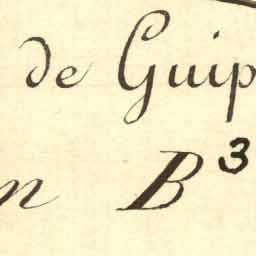 de Guip
n B³